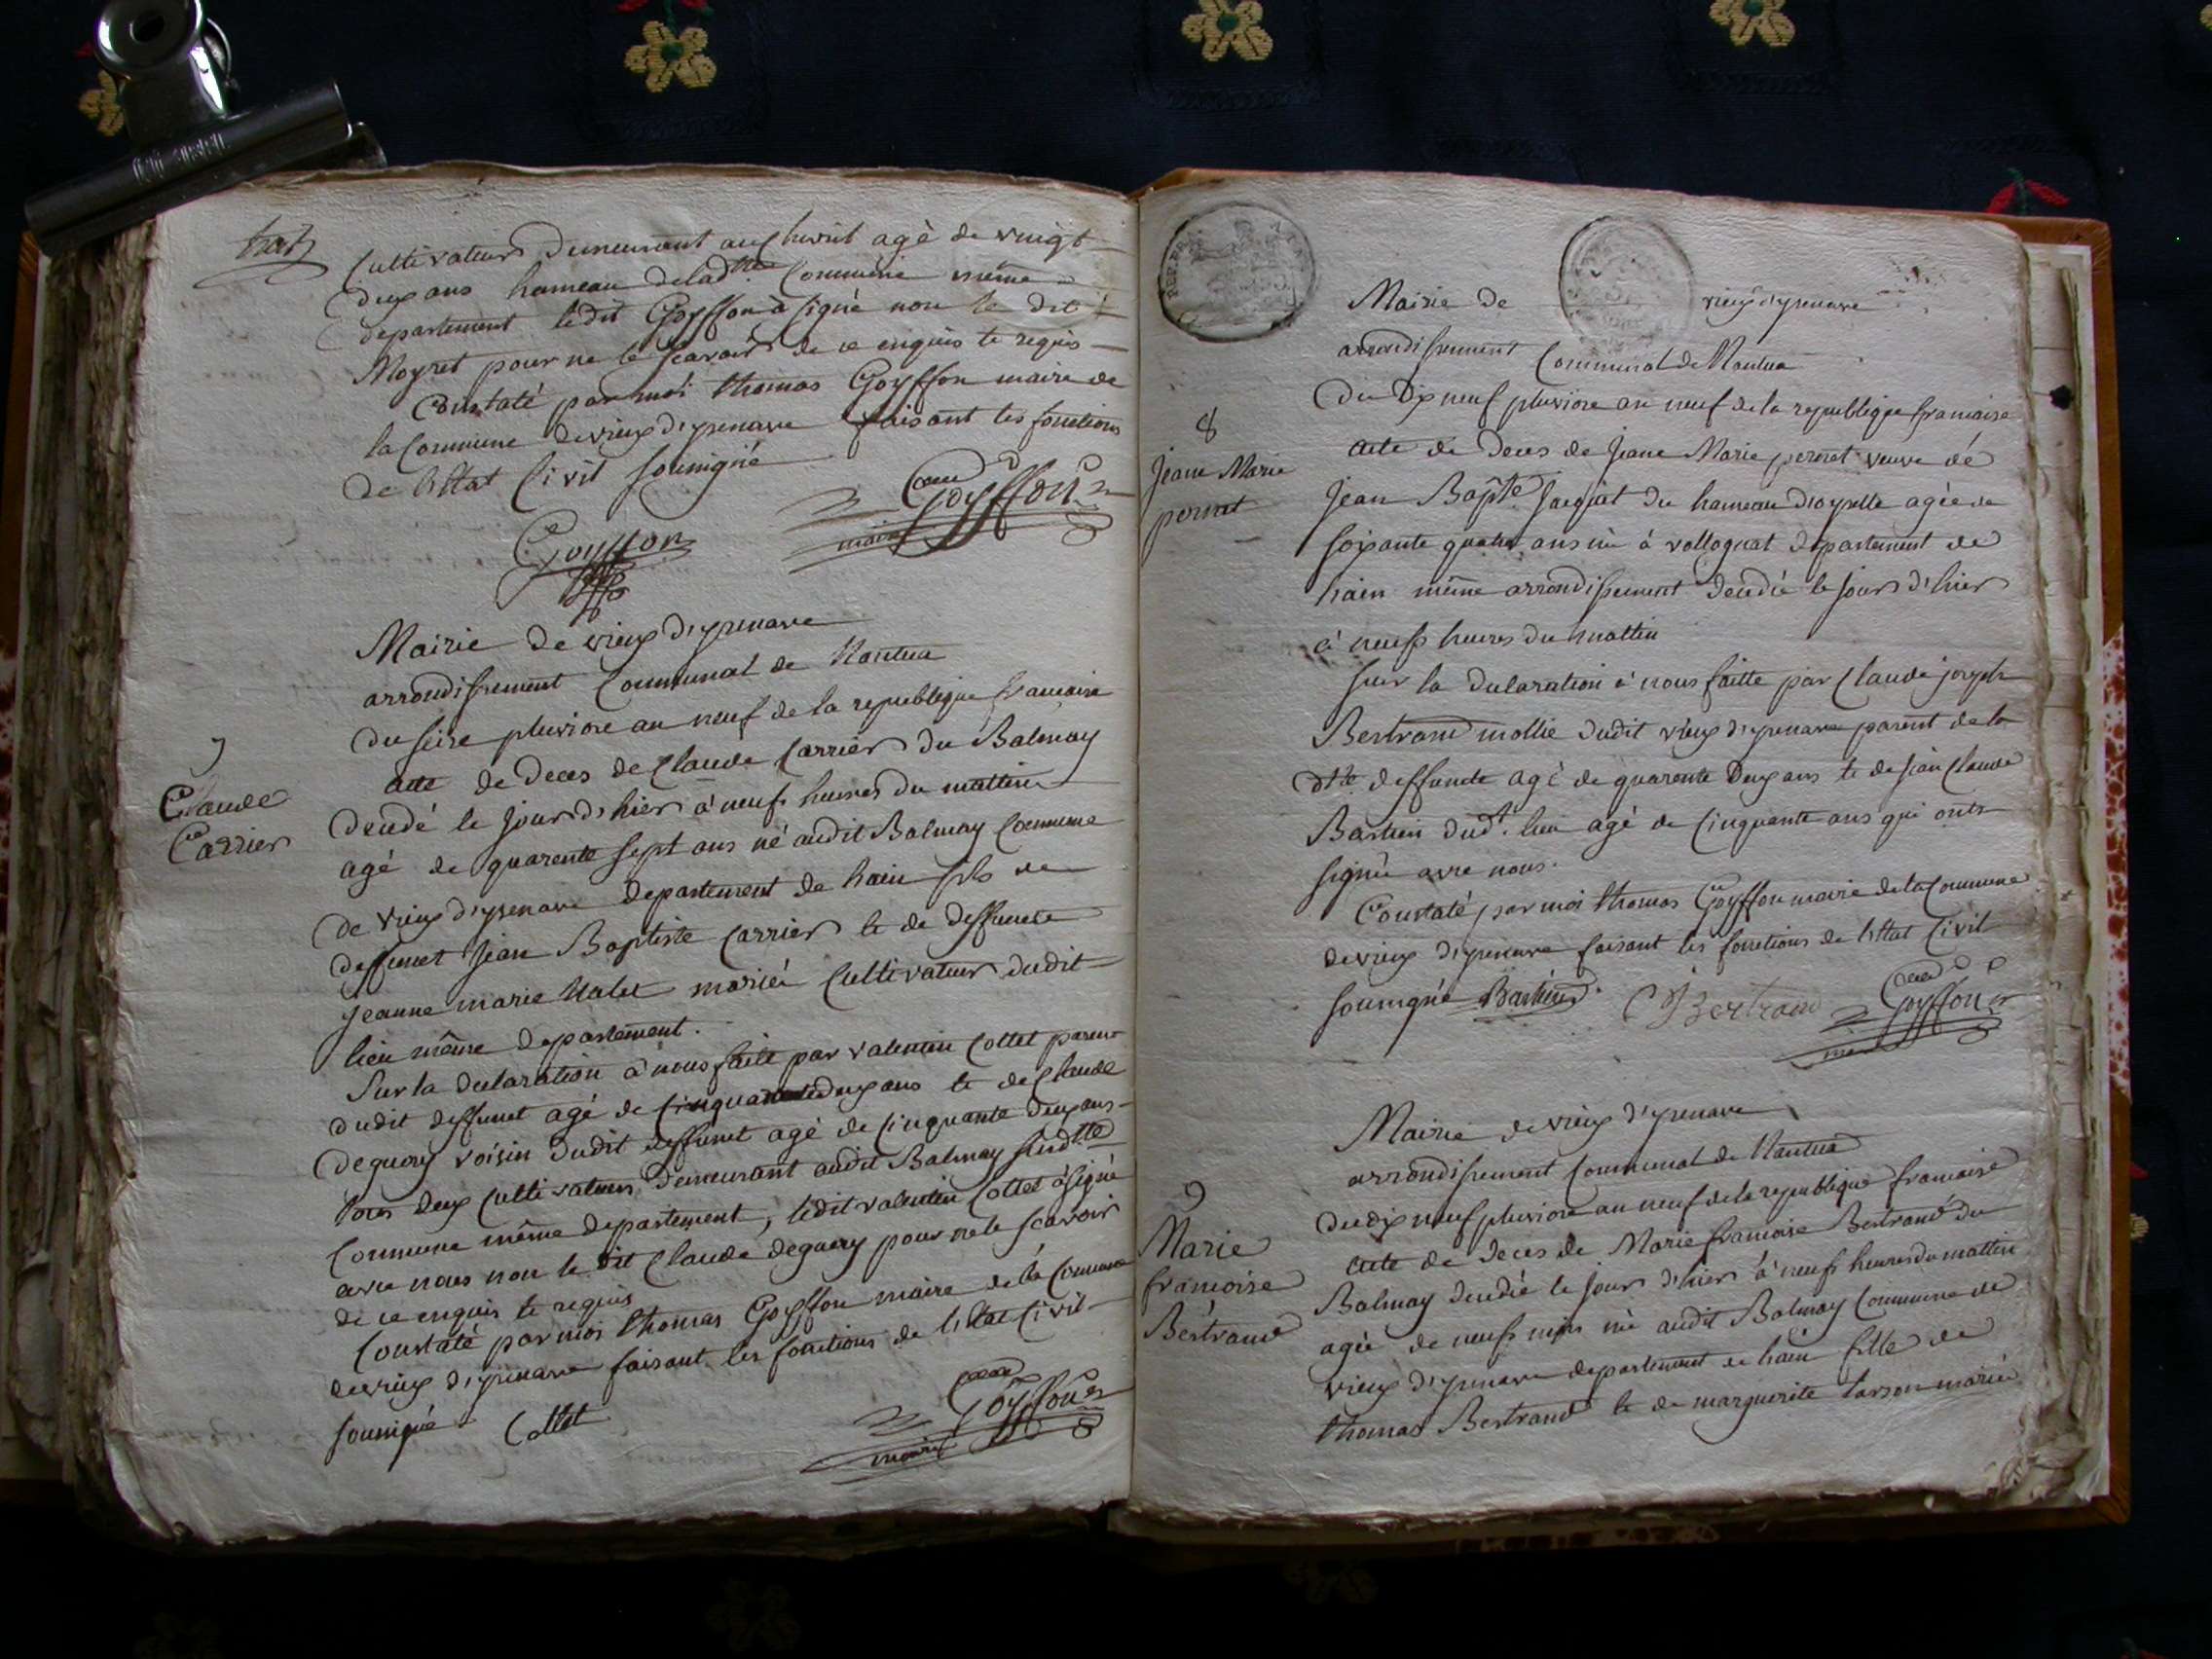 Cultivateur Demeurant au Chevril agé de vingt
deux ans hameau de lad.te Commune même
departement ledit Goyffon à signé non le dit
Moyret pour ne le scavoir de ce enquis te requis
Constaté par moi thomas Goyffon maire de
la Commune de vieux d'yzenave faisant les fonctions
de l'Etat Civil sousigné
Goyffon
Goyffon
maire
Mairie de vieux d'yzenave
arrondissement Communal de Nantua
du seise pluviose an neuf de la republique francaise
7
Claude
Carrier
acte de Deces de Claude Carrier du Balmay
decedé le jour d'hier à neuf heures du mattin
agé de quarente sept ans né audit Balmay Commune
de vieux d'yzenave departement de hain fils de
deffunct Jean Baptiste Carrier te de deffuncte
jeanne marie Nalet mariée Cultivateur dudit
lieu même departement.
Sur la declaration à nous faite par valentin Cottet parent
dudit deffunct agé de Cinquante deux ans te de Claude
deguery voisin dudit deffunct agé de Cinquante deux ans
tous deux Cultivateurs demeurant audit Balmay susd.tte
Commune même departement, ledit valentin Cottet à signé
avec nous non le dit Claude deguery pour ne le scavoir
de ce enquis te requis
Constaté par moi thomas Goyffon maire de la Commune
de vieux d'yzenave faisant les fonctions de l'Etat Civil
sousigné Cottet
Goyffon
maire
REP. FRA
Mairie de vieux d'yzenave
arrondissement Communal de Nantua
Du Dix neuf pluviose an neuf de la republique francaise
8
Jeane Marie
pernet
acte de Deces de Jeane Marie pernet veuve de
Jean Bapte Jacquat du hameau d'oyselle agée de
soixante quatre ans né à vollognat departement de
hain même arrondissement decedée le jour d'hier
à neufs heures du mattin
sur la declaration à nous faitte par Claude joseph
Bertrand mollie dudit vieux d'yzenave parent de la
d.tte deffuncte agé de quarente deux ans te de Jean Claude
Bastien dud.t lieu agé de Cinquante ans qui onts
signés avec nous.
Constaté par moi thomas Goyffon maire de la Commune
de vieux d'yzenave faisant les fonctions de l'Etat Civil
sousigné Bastien CJ Bertrand Goyffon
maire
Mairie de vieux d'yzenave
arrondissement Communal de Nantua
du dix neuf pluviose an neuf de la republique francaise
9
Marie
francoise
Bertrand
acte de deces de Marie francoise Bertrand du
Balmay decedée le jour d'hier à neufs heures du mattin
agée de neufs mois né audit Balmay Commune de
vieux d'yzenave departement de hain fille de
thomas Bertrand te de marguerite tarson mariée